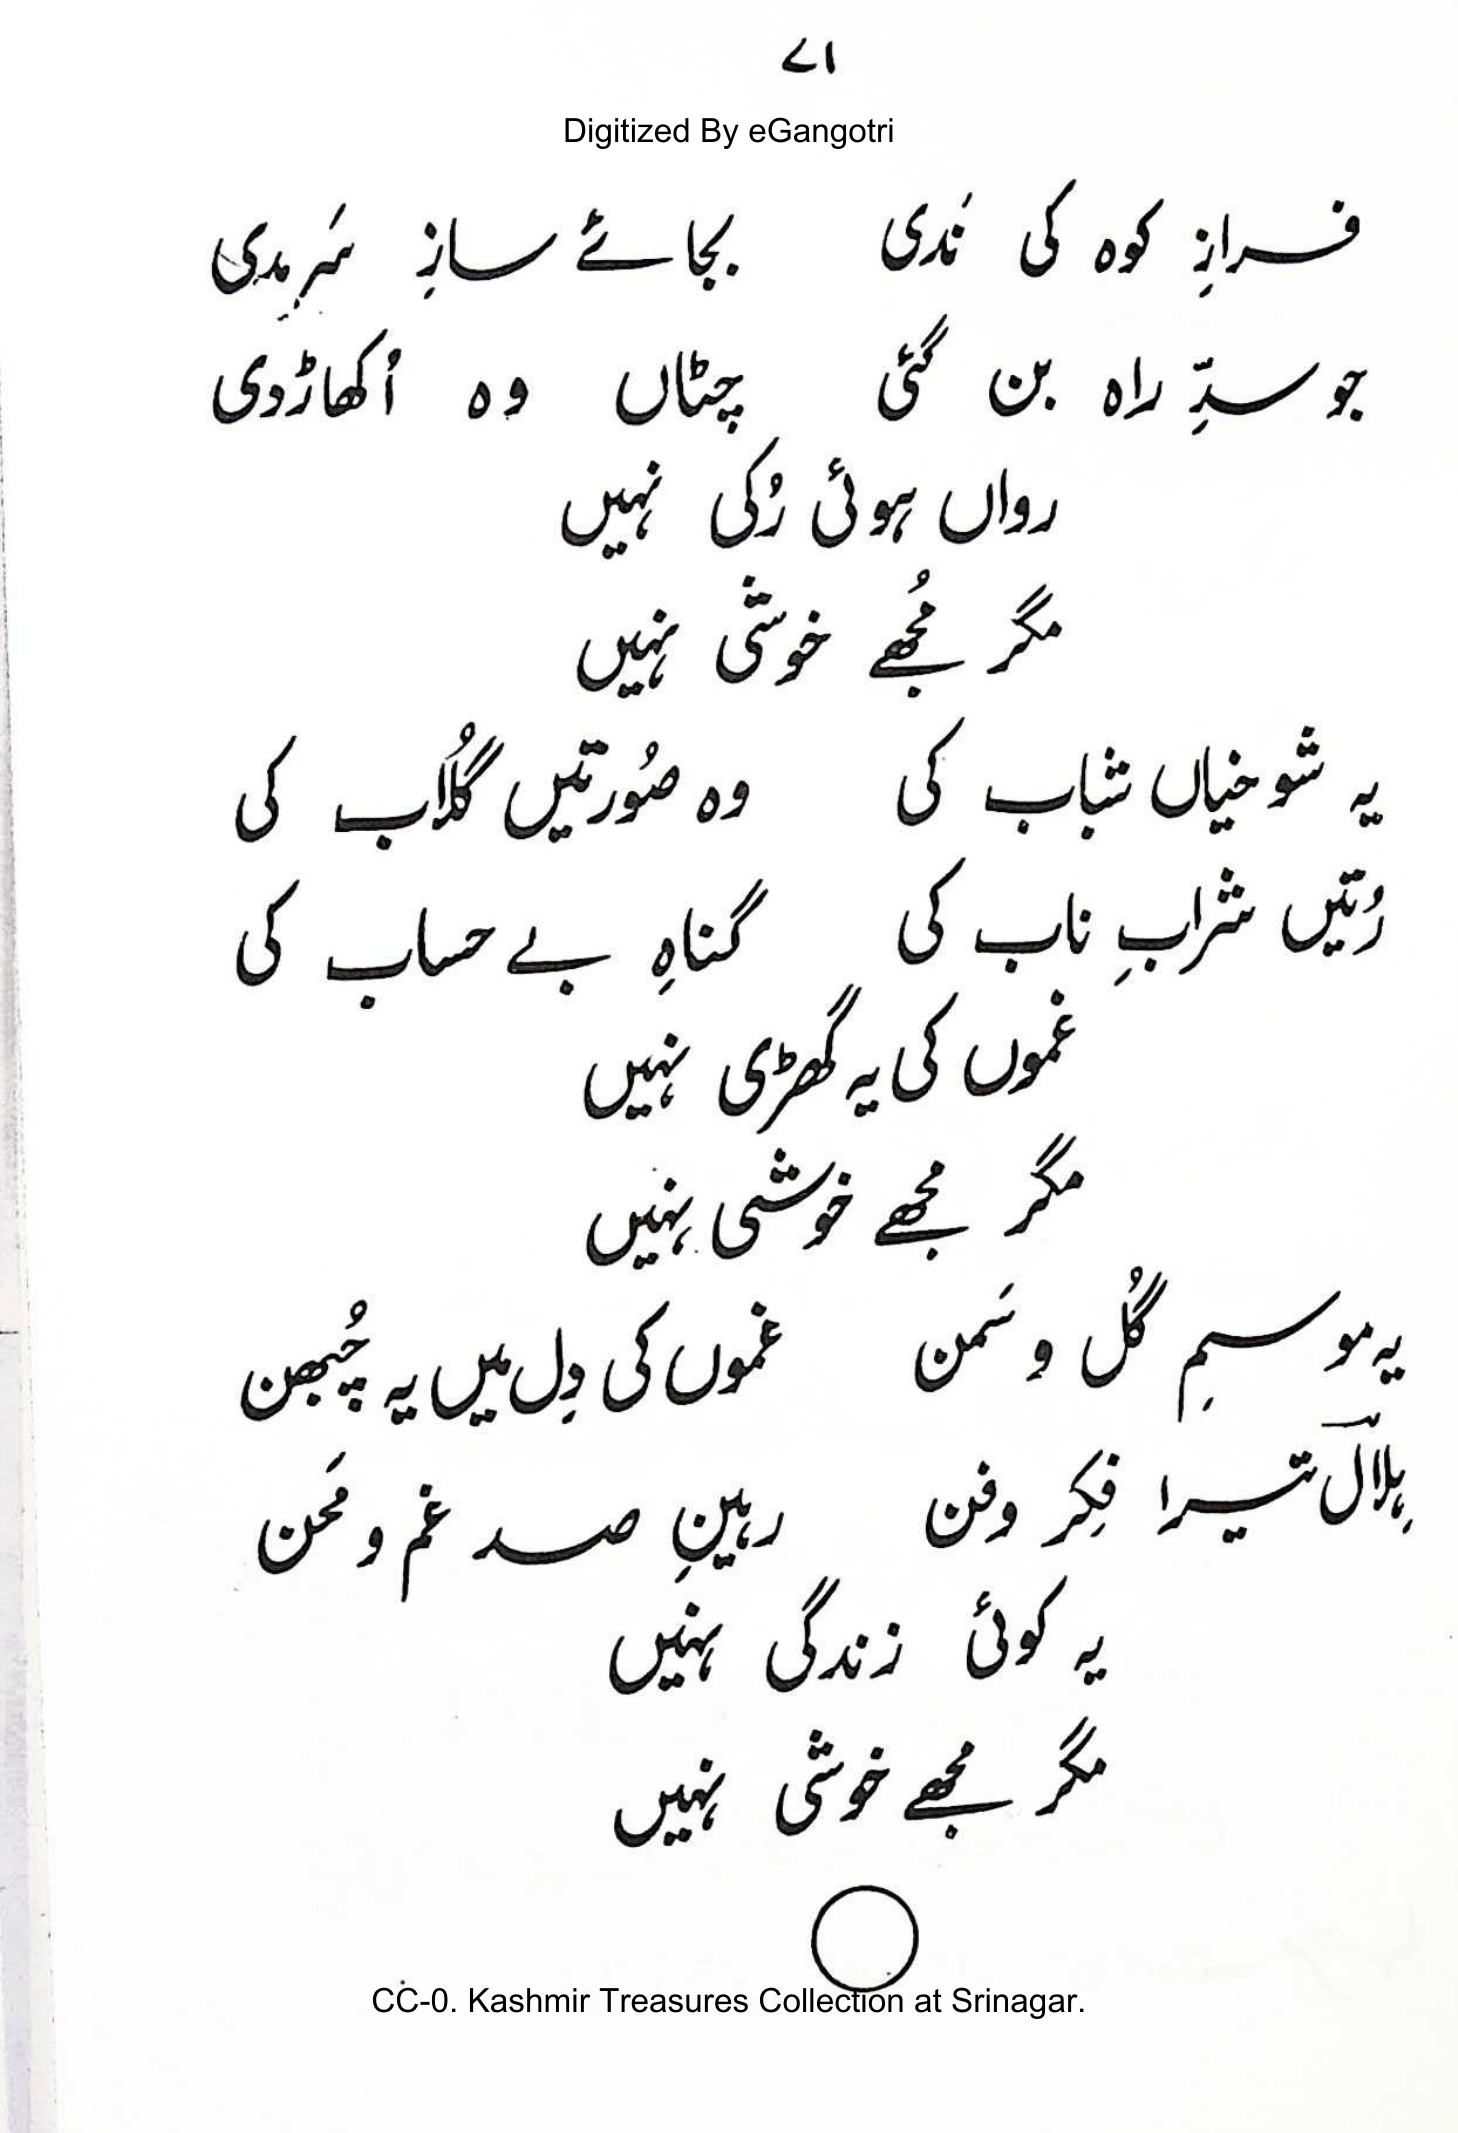 ۷۱
Digitized By eGangotri
فرازِ کوہ کی نَدی بجائے سازِ سَرمِدی
جو سدِّ راہ بن گئی چٹاں وہ اُکھاڑ دی
رواں ہوئی رُکی نہیں
مگر مُجھے خوشی نہیں
یہ شوخیاں شباب کی وہ صُورتیں گُلاب کی
رُتیں شرابِ ناب کی گناہِ بے حساب کی
غموں کی یہ گھڑی نہیں
مگر مجھے خوشی نہیں
یہ موسمِ گُل و سَمن غموں کی دِل میں یہ چُبھن
ہِلال تیرا فِکر وفن رہینِ صد غم و مَحن
یہ کوئی زندگی نہیں
مگر مجھے خوشی نہیں
CC-0. Kashmir Treasures Collection at Srinagar.